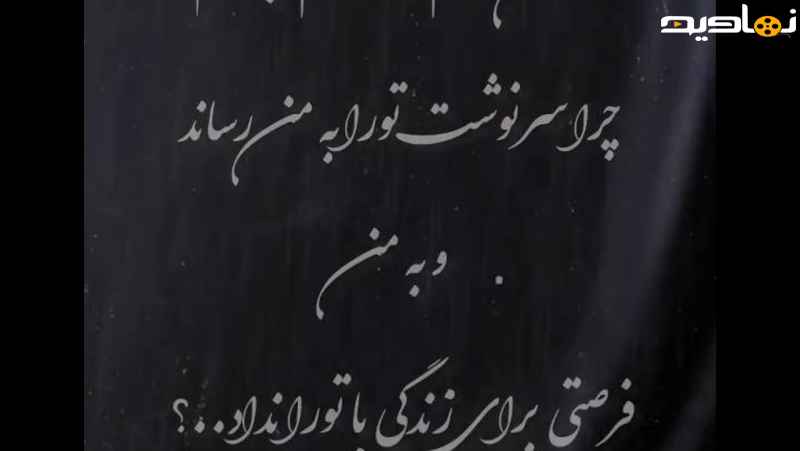 نمادین
چرا سرنوشت تو را به من رساند
و به من
فرصتی برای زندگی با تو را نداد..؟